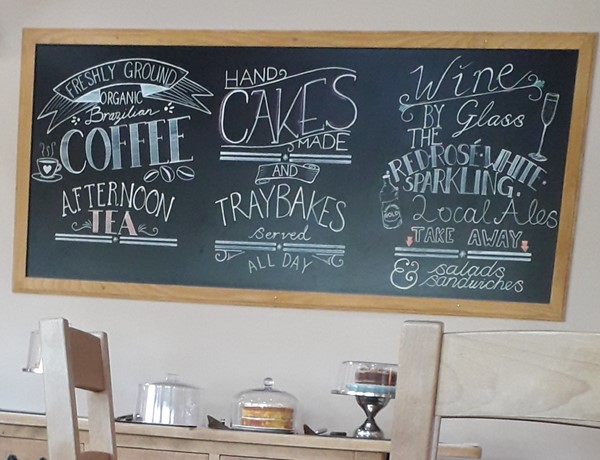 FRESHLY GROUND
ORGANIC
Brazilian
COFFEE
AFTERNOON
TEA
HAND
CAKES
MADE
AND
TRAYBAKES
served
ALL DAY
Wine
BY Glass
THE
RED·ROSÉ·WHITE·
SPARKLING.
Local Ales
TAKE AWAY
& salads
sandwiches